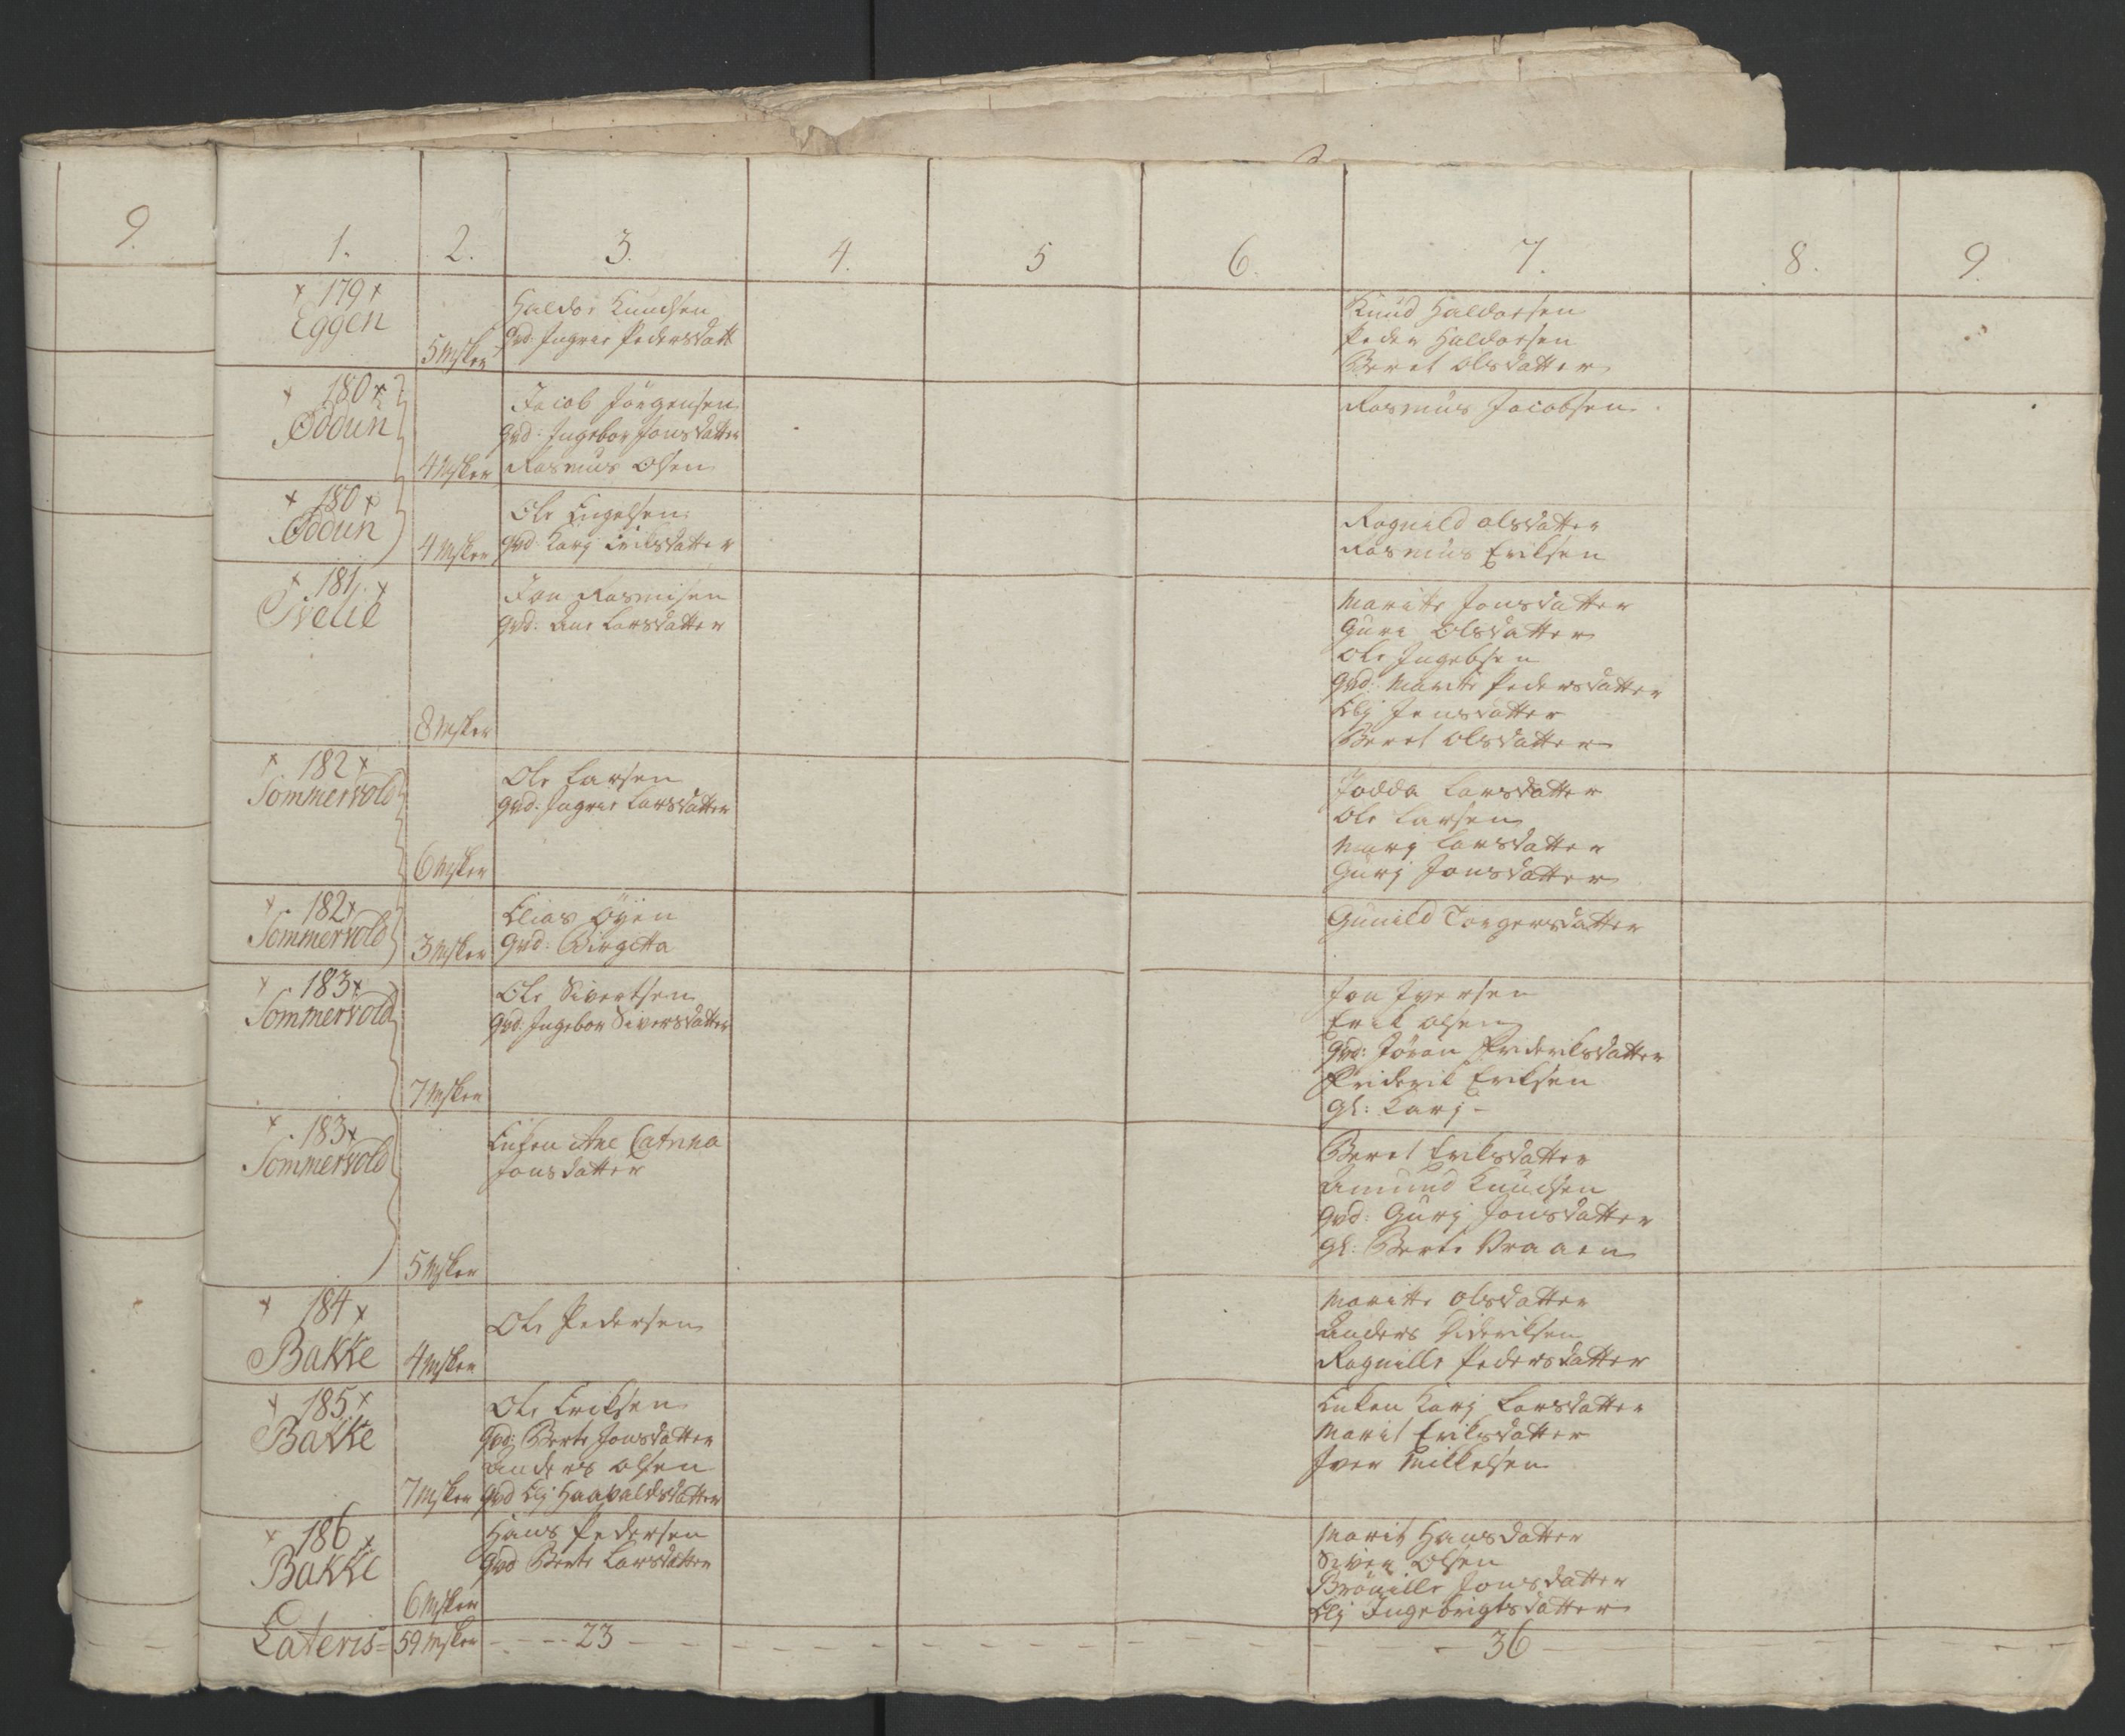 9.
1. 2. 3. 4. 5 6. 7. 8. 9.
179
Eggen
5 Msker
Haldor Knudsen
qvd: Ingrie Pedersdatt
Knud Haldorsen
Peder Haldorsen
Beret Olsdatter
180
Øddun
4 Msker
Jacob Jörgensen
qvd: Ingebor Jonsdatter
Rasmus Olsen
Rasmus Jacobsen
180
Øddun
4 Msker
Ole Engelsen
qvd: Karj Eriksdatter
Ragnild Olsdatter
Rasmus Eriksen
181
8 Msker
Jon Rasmisen
qvd: Ane Larsdatter
Maritte Jonsdatter
Guri Olsdatter
Ole Ingebsen
qvd: Maritte Pedersdatter
Elj Jensdatter
Beret Olsdatter
182
Sommervold
6 Msker
Ole Larsen
qvd: Ingrie Larsdatter
Jodda Larsdatter
Ole Larsen
Marj Larsdatter
Gurj Jonsdatter
182
Sommervold
3 Msker
Elias Öyen
qvd: Birgitta
Gunild Torgersdatter
183
Sommervold
7 Msker
Ole Sivertsen
qvd: Ingebor Siversdatter
Jon Iversen
Erik Olsen
qvd: Jöran Frideriksdatter
Friderik Eriksen
gl: Karj -
183
Sommervold
5 Msker
Enken Ane Catrina
Jonsdatter
Beret Eriksdatter
Amund Knudsen
qvd: Gurj Jonsdatter
gl: Berte Braaen
184
Bakke
4 Msker
Ole Pedersen
Maritte Olsdatter
Anders Dideriksen
Ragnille Pedersdatter
185
Bakke
7 Msker
Ole Eriksen
qvd: Berte Jonsdatter
Anders Olsen
qvd Elj Haavaldsdatter
Enken Karj Larsdatter
Marit Eriksdatter
Iver Mikkelsen
186
Bakke
6 Msker
Hans Pedersen
qvd Berte Larsdatter
Marit Hansdatter
Siver Olsen
Brönille Jonsdatter
Elj Ingebrigtsdatter
Lateris = 59 Msker - - - 23 - - - 36